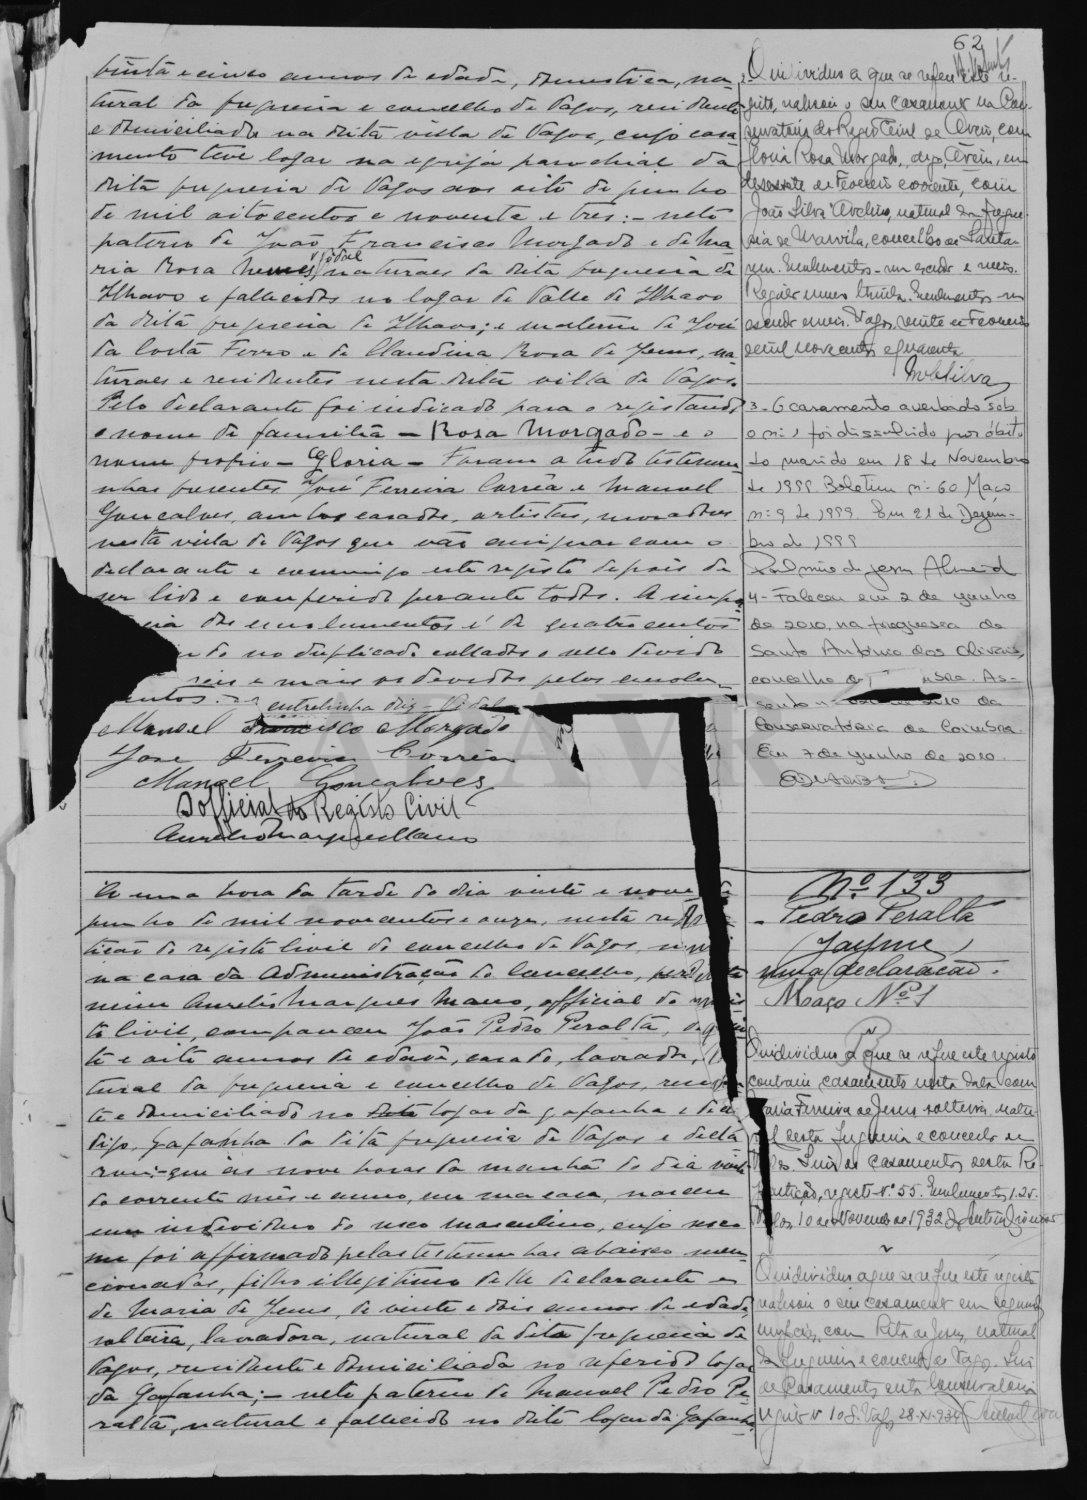 62
trinta e cinco annos de edade, domestica, na-
tural da freguesia e concelho de Vagos, residente
e domiciliada na dita villa de Vagos, cujo casa-
mento teve logar na egreja parochial da
dita freguesia de Vagos aos oito de junho
de mil oitocentos e noventa e tres: - neto
paterno de João Francisco Morgado e de Ma-
ria Rosa Vidal naturaes da dita freguesia de
Ilhavo e fallecidos no logar de Valle de Ilhavo
da dita freguesia de Ilhavo; e materno de José
da Costa Ferro e de Claudina Rosa de Jesus, na-
turaes e residentes nesta dita villa de Vagos.
Pelo declarante foi indicado para o registando
o nome de familia - Rosa Morgado - e o
nome proprio - Gloria - Foram a tudo testemu-
nhas presentes José Ferreira Corrêa e Manuel
Gonçalves, ambos casados, artistas, moradores
nesta villa de Vagos que vão assignar com o
declarante e commigo este registo depois de
ser lido e conferido perante todos. A impor-
dos emolumentos é de quatrocentos
no duplicado collados o sello devido
reis e mais os devidos pelos emolu-
mentos.
entrelinha diz - Vidal
Manoel Francisco Morgado
José Ferreira Corrêa
Manoel Gonçalves
O official do Registo Civil
Aurelio Marques Mano
O individuo a que se refere este re-
gisto, realisou o seu casamento na Con-
servatoria do Registo Civil de Aveiro, com
Gloria Rosa Morgado, digo, Aveiro, em
desassete de Fevereiro corrente, com
João Silva Avelino, natural da fregue-
sia de Marvila, concelho de Santa-
rem. Emolumentos - um escudo e meio.
Registo numero trinta. Emolumentos um
escudo e meio. Vagos, vinte de Fevereiro
de mil novecentos e quarenta
3 - O casamento averbado sob
o nº 1 foi dissolvido por óbito
do marido em 18 de Novembro
de 1999 Boletim nº 60 Maço
nº 9 de 1999 Em 21 de Dezem-
bro de 1999
4 - Faleceu em 2 de junho
de 2010, na freguesia de
Santo António dos Olivais,
concelho de
2010 da
Conservatória de Coimbra.
Em 7 de junho de 2010.
A uma hora da tarde do dia vinte e nove de
junho de mil novecentos e onze, nesta repar-
tição do registo civil do concelho de Vagos,
na casa da Administração do Concelho, perante
mim Aurelio Marques Mano, official do regis-
to civil, compareceu João Pedro Peralta, de vin-
te e oito annos de edade, casado, lavrador, na-
tural da freguesia e concelho de Vagos, residen-
te e domiciliado no dito logar da gafanha e de
digo, Gafanha da dita freguesia de Vagos e decla-
rou: - que ás nove horas da manhã do dia vinte
do corrente mês e anno, em sua casa, nasceu
um individuo do sexo masculino, cujo sexo
me foi affirmado pelas testemunhas abaixo men-
cionadas, filho illegitimo delle declarante e
de Maria de Jesus, de vinte e dois annos de edade,
solteira, lavradora, natural da dita freguesia de
Vagos, residente e domiciliada no referido logar
da Gafanha; - neto paterno de Manuel Pedro Pe-
ralta, natural e fallecido no dito logar da Gafanha,
Nº 133
Pedro Peralta
(Jayme)
uma declaração.
Maço Nº 1
O individuo a que se refere este registo
contraiu casamento nesta data com
Maria Ferreira de Jesus solteira, natu-
ral desta freguesia e concelho de
Vagos. Livro de casamentos desta Re-
partição, registo nº 55. Emolumentos 1.25.
Vagos, 10 de Novembro de 1932
O individuo a que se refere este registo
realisou o seu casamento em segundas
nupcias, com Rita de Jesus, natural
da freguesia e concelho de Vagos. Livro
de Casamentos desta Conservatoria
registo nº 108. Vagos, 28-XI-934